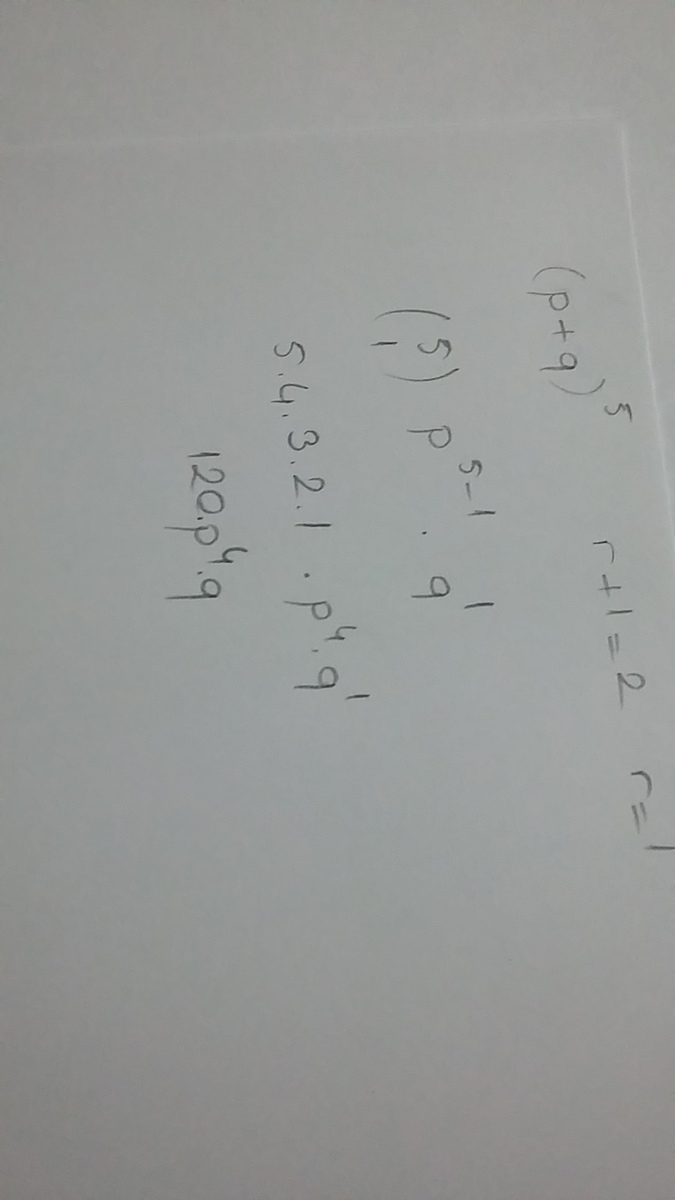 (p+q)⁵ r+1=2 r=1
(5 1) p⁵⁻¹ . q¹
5.4.3.2.1 . p⁴.q¹
120.p⁴.q